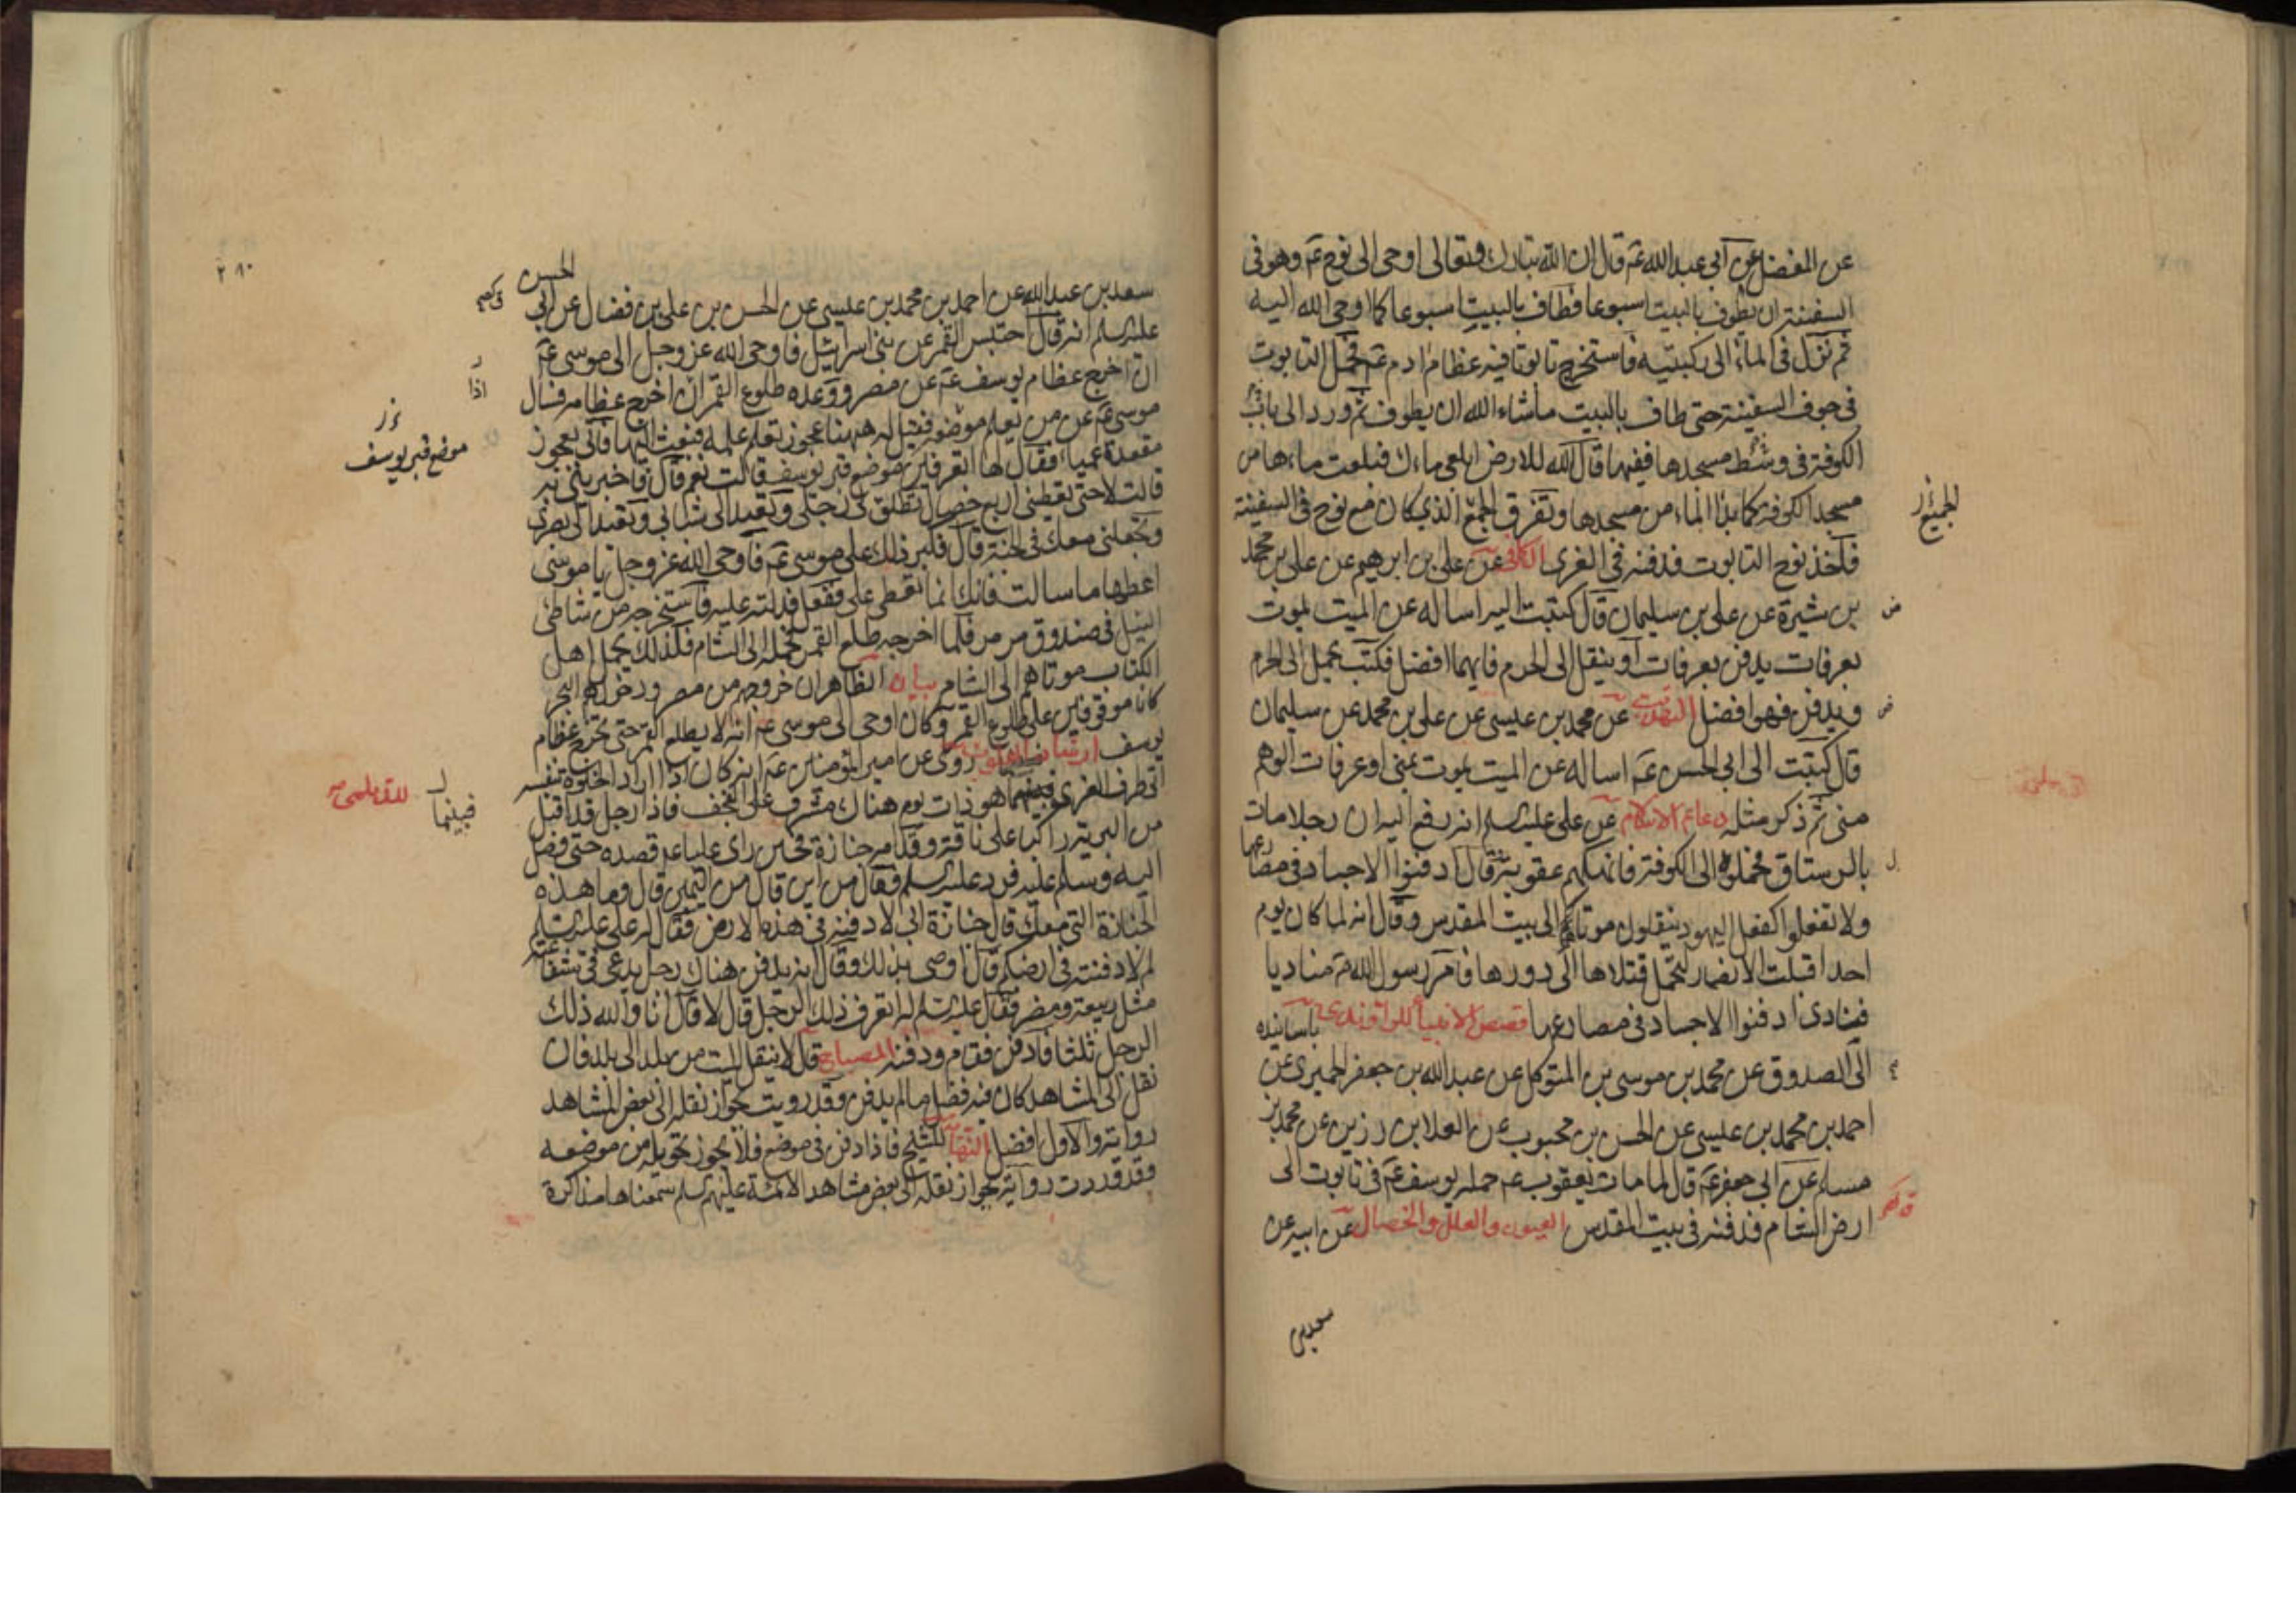 عن المفضل عن ابي عبد الله عم قال ان الله تبارك وتعالى اوحى الى نوح عم وهو في
السفينة ان يطوف بالبيت اسبوعا فطاف بالبيت اسبوعا كما اوحى الله اليه
ثم نزل في الماء الى ركبتيه فاستخرج تابوتا فيه عظام ادم عم فحمل التابوت
في جوف السفينة حتى طاف بالبيت ما شاء الله ان يطوف ثم ورد الى باب
الكوفة في وسط مسجدها ففيها قال الله للارض ابلعى ماءك فبلعت ماءها من
مسجد الكوفة كما بدا الماء من مسجدها وتفرق الجمع الذي كان مع نوح في السفينة
الجميع ز
فاخذ نوح التابوت فدفنه في الغرى الكافى عن علي بن ابرهيم عن علي بن محمد
بن شيرة عن علي بن سليمان قال كتبت اليه اساله عن الميت يموت
بعرفات يدفن بعرفات او ينقل الى الحرم فايهما افضل فكتب يحمل الى الحرم
ويدفن فهو افضل التهذيب عن محمد بن عيسى عن علي بن محمد عن سليمان
قال كتبت الى ابي الحسن عم اساله عن الميت يموت بمنى او عرفات الوهم
منى ثم ذكر مثله دعائم الاسلام عن علي عليه السلم انه رفع اليه ان رجلا مات
بالرستاق فحملوه الى الكوفة فانهكهم عقوبة وقال ادفنوا الاجساد في مصارعها
ولا تفعلوا كفعل اليهود ينقلون موتاهم الى بيت المقدس وقال انه لما كان يوم
احد اقبلت الانصار لتحمل قتلاها الى دورها فامر رسول الله ص مناديا
فنادى ادفنوا الاجساد في مصارعها قصص الانبياء للراوندي باسانيده
الى الصدوق عن محمد بن موسى بن المتوكل عن عبد الله بن جعفر الحميري عن
احمد بن محمد بن عيسى عن الحسن بن محبوب عن العلا بن رزين عن محمد بن
مسلم عن ابي جعفر عم قال لما مات يعقوب عم حمله يوسف عم في تابوت الى
ارض الشام فدفنه في بيت المقدس العيون والعلل والخصال عن ابيه عن
سعد بن
٢٨٠
الحسن
سعد بن عبد الله عن احمد بن محمد بن عيسى عن الحسن بن علي بن فضال عن ابي
عليه السلم انه قال احتبس القمر عن بني اسرائيل فاوحى الله عز وجل الى موسى عم
ان اخرج عظام يوسف عم عن مصر ووعده طلوع القمر ان اخرج عظامه فسال
اذا
موسى عم عن من يعلم موضعه فقيل له ههنا عجوز تعلم علمه فبعث اليها فاتى بعجوز
مقعدة عمياء فقال لها اتعرفين موضع قبر يوسف قالت نعم قال فاخبريني به
موضع قبر يوسف
قالت لا حتى تعطينى اربع خصال تطلق لى رجلى وتعيد الى شبابى وتعيد الى بصرى
وتجعلنى معك في الجنة قال فكبر ذلك على موسى عم فاوحى الله عز وجل يا موسى
اعطها ما سالت فانك انما تعطى على ففعل فدلته عليه فاستخرجه من شاطئ
النيل في صندوق مرمر فلما اخرجه طلع القمر فحمله الى الشام فلذلك يحمل اهل
الكتاب موتاهم الى الشام بيان الظاهر ان خروجه من مصر ودخولهم البحر
كانا موقوفين على طلوع القمر وكان اوحى الى موسى عم انه لا يطلع القمر حتى تخرج عظام
يوسف ارشاد القلوب روى عن امير المؤمنين عم انه كان اذا اراد الخلوة بنفسه
للديلمى
اتى طرف الغرى فبينما هو ذات يوم هناك مشرف على النجف فاذا رجل قد اقبل
فبينما
من البرية راكبا على ناقة وقدامه جنازة فحين راى عليا عم قصده حتى وصل
اليه وسلم عليه فرد عليه السلم وقال من اين قال من اليمن قال وما هذه
الجنازة التي معك قال جنازة ابى لادفنه في هذه الارض فقال له علي عليه السلم
لم لا دفنته في ارضكم قال اوصى بذلك وقال انه يدفن هناك رجل يدعى في شفاعته
مثل ربيعة ومضر فقال عليه السلم له اتعرف ذلك الرجل قال لا قال انا والله ذلك
الرجل ثلثا فادفن فقام ودفنه المصباح قال لا ينقل الميت من بلد الى بلد فان
نقل الى المشاهد كان فيه فضل ما لم يدفن وقد رويت بجواز نقله الى بعض المشاهد
رواية والاول افضل النهاية للشيخ فاذا دفن في موضع فلا يجوز تحويله من موضعه
وقد وردت رواية بجواز نقله الى بعض مشاهد الائمة عليهم السلم سمعناها مذاكرة